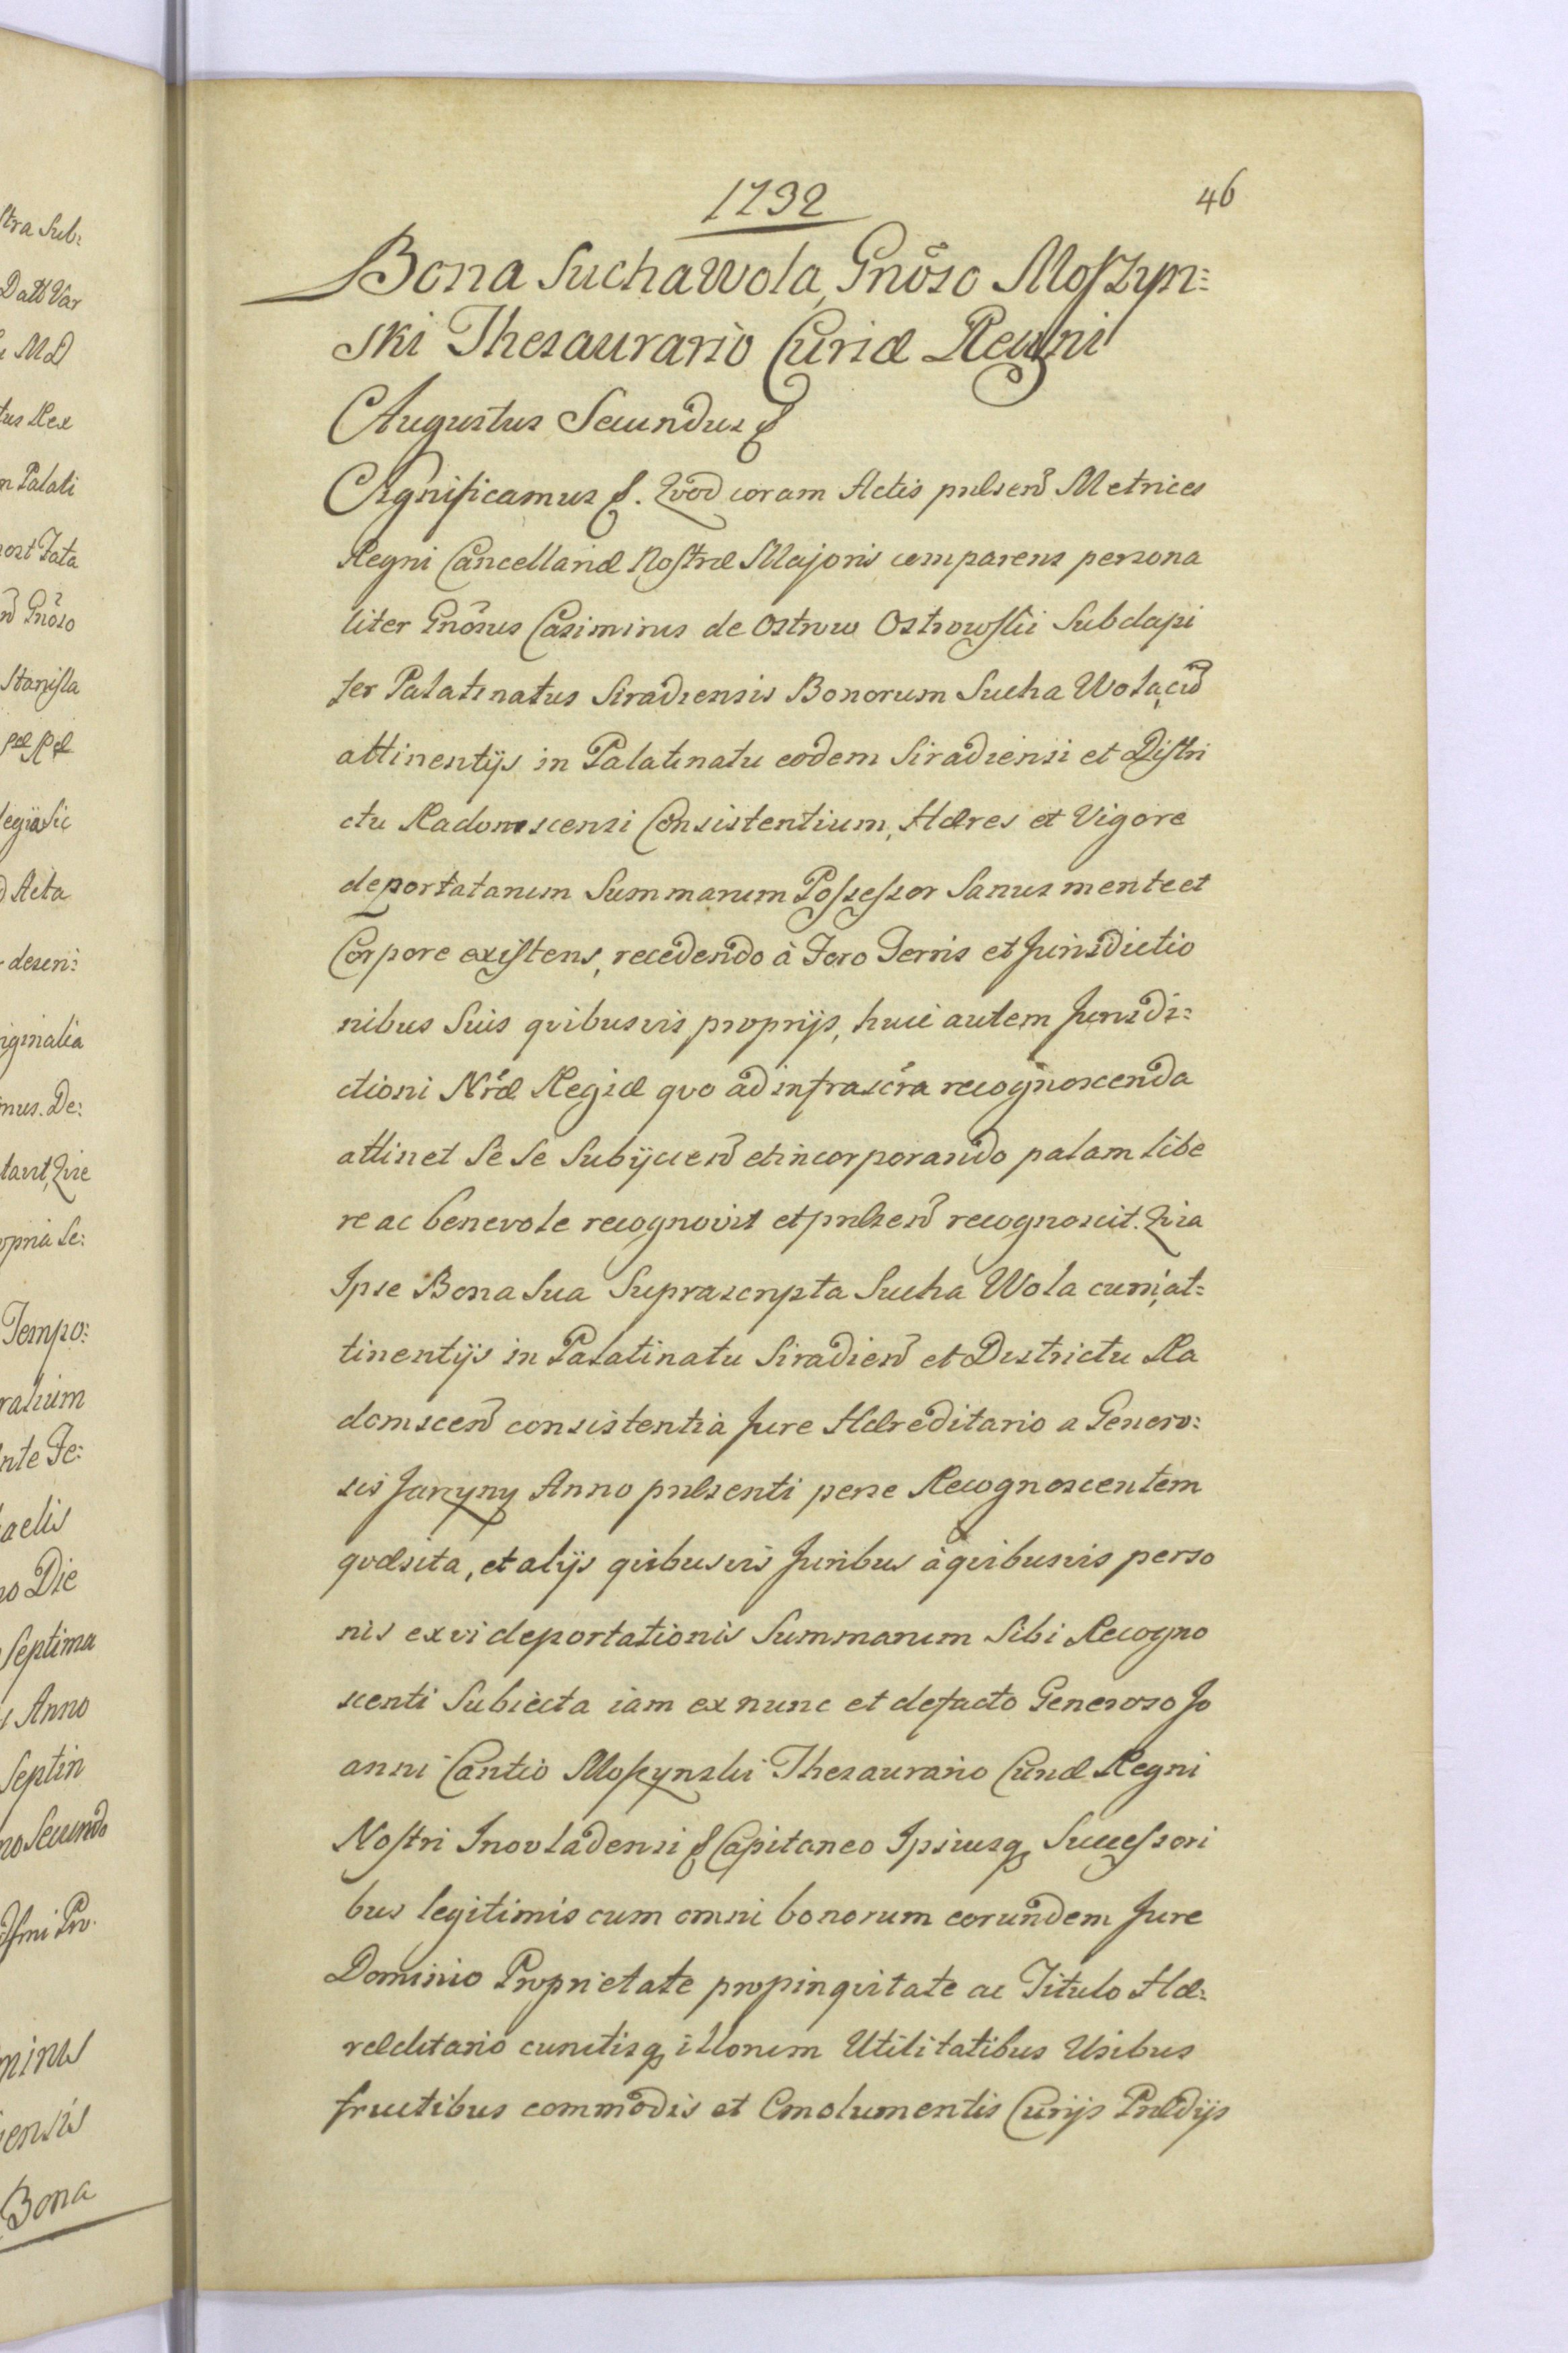 1732
46
Bona Suchawola, Gnoso Moszyn:
ski Thesaurario Curiæ Regni
Augustus Secundus &
Significamus &. Qvod coram Actis præsend Metrices
Regni Cancellariæ Nostræ Majoris comparens persona
liter Gnosus Casimirus de Ostrow Ostrowski Subdapi
fer Palatinatus Siradiensis Bonorum Sucha Wola, cu
attinentijs in Palatinatu eodem Siradiensi et Distri
ctu Radomscensi Consistentium, Hæres et Vigore
deportatarum Summarum Possessor Sanus mente et
Corpore existens, recedendo à Foro Terris et Jurisdictio
nibus Suis qvibusvis proprijs, huic autem Jurisdi:
ctioni Nræ Regiæ qvo ad infrascra recognoscenda
attinet Se Se Subijciend et incorporando palam libe
re ac benevole recognovit et præsend recognoscit. Qvia
Ipse Bona Sua Suprascripta Sucha Wola cum, at:
tinentijs in Palatinatu Siradiend et Districtu Ra
domscend consistentia Jure Hæreditario a Genero:
sis Jarzyny Anno præsenti per se Recognoscentem
qvæsita, et alijs qvibusvis Juribus à qvibusvis perso
nis ex vi deportationis Summarum Sibi Recogno
scenti Subiecta iam ex nunc et defacto Generoso Jo
anni Cantio Moszynski Thesaurario Curiæ Regni
Nostri Inovladensi & Capitaneo Ipsiusq Successori
bus legitimis cum omni bonorum eorundem Jure
Dominio Proprietate propinqvitate ac Titulo Hæ:
ræditario cunctisq illorum Utilitatibus Usibus
fructibus commodis et Emolumentis Curijs Prædijs
stra Sub:
Datt Var
MD
tus Rex
m Palati
post Fata
Gnoso
Stanisla
Acta
descri:
riginalia
mus. De:
opria Se:
Tempo:
ralium
nte Fe:
aelis
no Die
Septima
Anno
Septin
no Secundo
minus
iensis
Bona